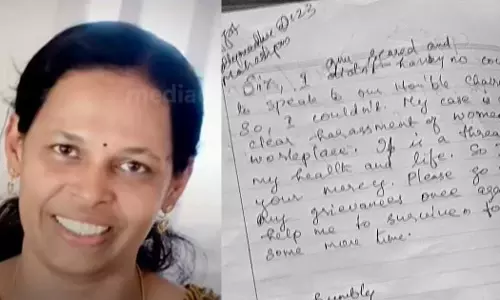 media
Sir, I am scared and
having no cou
to speak to our Hon'ble Chair
So, I couldn't. My case is
clear harassment of women
workplace. It is a threa
my health and life. So I
your mercy. Please go
my grievances once aga
help me to survive fo
some more time.
Humbly